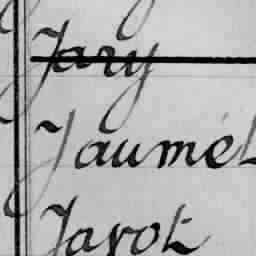 Jary
Jaumet
Jayot